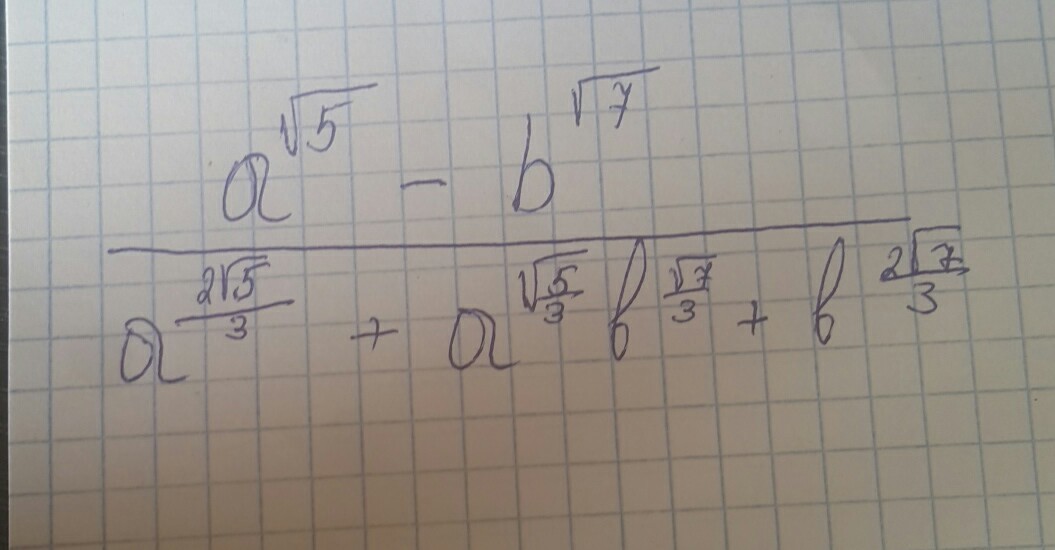 a^{\sqrt{5}} - b^{\sqrt{7}}
a^{\frac{2\sqrt{5}}{3}} + a^{\frac{\sqrt{5}}{3}} b^{\frac{\sqrt{7}}{3}} + b^{\frac{2\sqrt{7}}{3}}